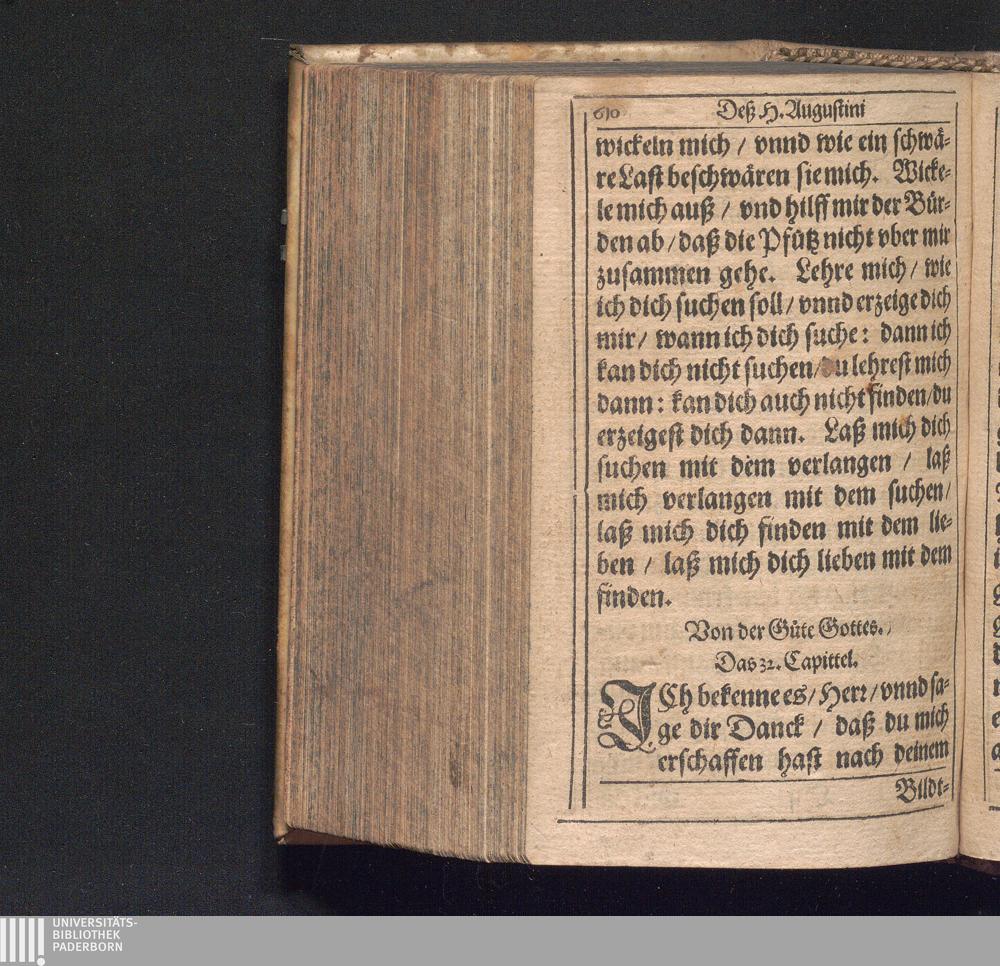 610 Deß H. Augustini
wickeln mich / vnnd wie ein schwä-
re Last beschwären sie mich. Wicke-
le mich auß / vnd hilff mir der Bür-
den ab / daß die Pfütz nicht vber mir
zusammen gehe. Lehre mich / wie
ich dich suchen soll / vnnd erzeige dich
mir / wann ich dich suche: dann ich
kan dich nicht suchen / du lehrest mich
dann: kan dich auch nicht finden / du
erzeigest dich dann. Laß mich dich
suchen mit dem verlangen / laß
mich verlangen mit dem suchen /
laß mich dich finden mit dem lie-
ben / laß mich dich lieben mit dem
finden.
Von der Güte Gottes.
Das 32. Capittel.
ICh bekenne es / Herr / vnnd sa-
ge dir Danck / daß du mich
erschaffen hast nach deinem
Bildt-
UNIVERSITÄTS-
BIBLIOTHEK
PADERBORN